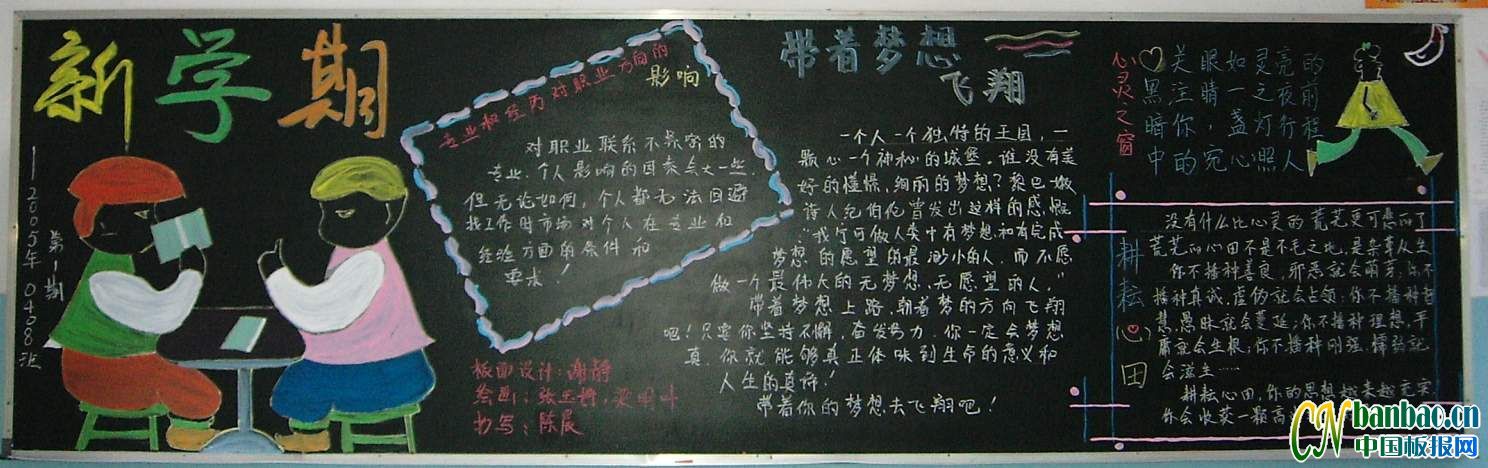 新学期
2005年第1期
0408班
专业和经历对职业方向的
影响
对职业联系不紧密的
专业,个人影响的因素会大一些.
但无论如何,个人都无法回避
找工作时市场对个人在专业和
经验方面的条件和
要求!
板面设计:谢静
绘画:张玉
抄写:陈晨
带着梦想
飞翔
一个人一个独特的王国,一
颗心一个神秘的城堡。谁没有美
好的憧憬,绚丽的梦想?黎巴嫩
诗人纪伯伦曾发出这样的感慨
"我宁可做人类中有梦想和有完成
梦想的愿望的最渺小的人,而不愿
做一个最伟大的无梦想、无愿望的人。"
带着梦想上路,朝着梦的方向飞翔
吧!只要你坚持不懈,奋发努力,你一定会梦想
真.你就能够真正体味到生命的意义和
人生的真谛!
带着你的梦想去飞翔吧!
心灵之窗
关眼如灵亮的
黑注睛一之夜前
暗你,盏灯行程
中的宛心照人
耕耘心田
没有什么比心灵的荒芜更可悲的了
荒芜的心田不是不毛之地,是杂草丛生
你不播种善良,邪恶就会萌芽;你不
播种真诚,虚伪就会占领;你不播种智
慧,愚昧就会蔓延;你不播种理想,平
庸就会生根;你不播种刚强,懦弱就
会滋生……
耕耘心田,你的思想越来越充实
你会收获一颗高
CN banbao.cn
中国板报网